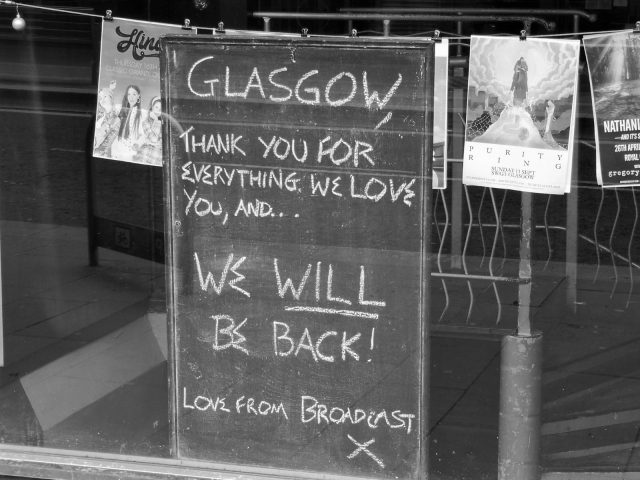 GLASGOW,
THANK YOU FOR
EVERYTHING. WE LOVE
YOU, AND...
WE WILL
BE BACK!
LOVE FROM BROADCAST
X
PURITY
RING
SUNDAY 11 SEPT
SWG3 GLASGOW
NATHANI
26TH APRIL
ROYAL
gregory